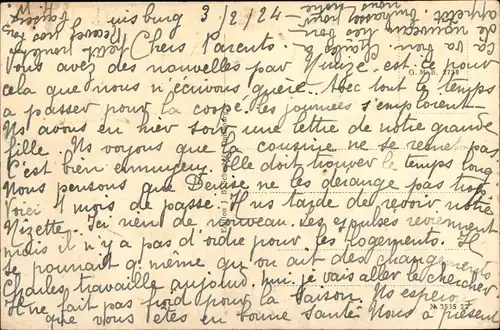 Duisburg 3/2/24
Chers Parents.
Vous avez des nouvelles par Nénize, est ce pour
cela que nous n'écrivons guère. Avec tout le temps
a passer pour la coupe, les journées s'emploient
Ns avons eu hier soir une lettre de notre grande
fille. Ns voyons que la cousine ne se remet pas
C'est bien ennuyeux. Elle doit trouver le temps long
Nous pensons que Denise ne les dérange pas trop
Voici 1 mois de passé. Il ns tarde de revoir notre
Nizette. Ici rien de nouveau. Les expulsés reviennent
mais il n'y a pas d'ordre pour les logements. Il
se pourrait q. même qu'on ait des changements
Charles travaille aujourd'hui, je vais aller le chercher
Il ne fait pas froid pour la saison. Ns espérons
que vous êtes en bonne santé. Nous à présent
ça va bien.
G. M. B. 2738
№ 3535 17